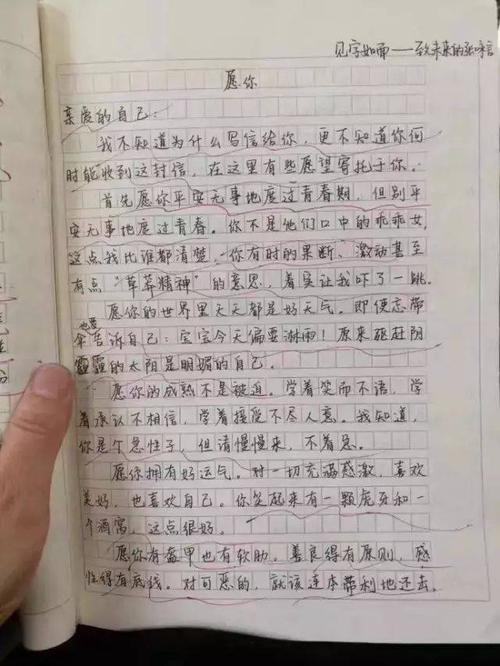 见字如面——致未来的张
愿你
亲爱的自己：
我不知道为什么写信给你，更不知道你何
时能收到这封信，在这里有些愿望寄托于你。
首先愿你平安无事地度过青春期，但别平
安无事地度过青春。你不是他们口中的乖乖女，
这点我比谁都清楚。你有时的果断、激动甚至
有点“草莽精神”的意思，着实让我吓了一跳。
愿你的世界里天天都是好天气。即便忘带
伞也要告诉自己：宝宝今天偏要淋雨！原来驱赶阴
霾的太阳是明媚的自己。
愿你的成熟不是被迫。学着笑而不语，学
着承认不相信，学着接受不尽人意。我知道，
你是个急性子，但请慢慢来，不着急。
愿你拥有好运气。对一切充满感激，喜欢
美好，也喜欢自己。你笑起来有一颗虎牙和一
个酒窝，这点很好。
愿你有盔甲也有软肋。善良得有原则，感
性得有底线。对可恶的，就该连本带利地还去。